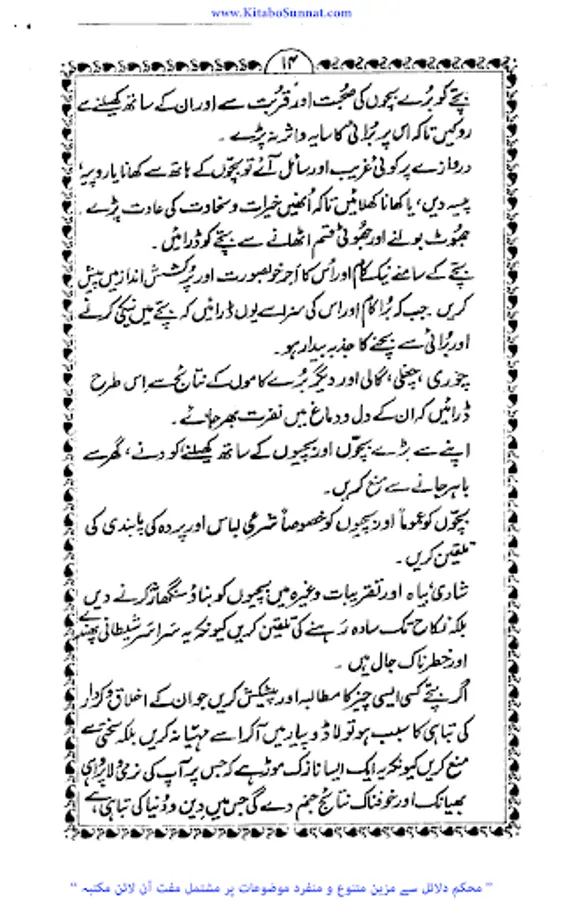 www.KitaboSunnat.com
۱۴
بچے کو بُرے بچوں کی صحبت اور قربت سے اور ان کے ساتھ کھیلنے سے
روکیں تاکہ اس پر بُرائی کا سایہ و اثر نہ پڑے۔
دروازے پر کوئی غریب اور سائل آئے تو بچوں کے ہاتھ سے کھانا یا روپیہ
پیسہ دیں، یا کھانا کھلائیں تاکہ اُنھیں خیرات و سخاوت کی عادت پڑے۔
جھوٹ بولنے اور جھوٹی قسم اٹھانے سے بچے کو ڈرائیں۔
بچے کے سامنے نیک کام اور اُس کا اجر خوبصورت اور پُرکشش انداز میں پیش
کریں جب کہ بُرا کام اور اس کی سزا سے یوں ڈرائیں کہ بچے میں نیکی کرنے
اور بُرائی سے بچنے کا جذبہ بیدار ہو۔
چوری، چغلی، گالی اور دیگر بُرے کاموں کے نتائج سے اِس طرح
ڈرائیں کہ ان کے دل و دماغ میں نفرت بھر جائے۔
اپنے سے بڑے بچوں اور بچیوں کے ساتھ کھیلنے کودنے، گھر سے
باہر جانے سے منع کریں۔
بچوں کو عموماً اور بچیوں کو خصوصاً شرعی لباس اور پردہ کی پابندی کی
تلقین کریں۔
شادی بیاہ اور تقریبات وغیرہ میں بچیوں کو بناؤ سنگھار نہ کرنے دیں
بلکہ نکاح تک سادہ رہنے کی تلقین کریں کیونکہ یہ سراسر شیطانی پھندے
اور خطرناک جال ہیں۔
اگر بچے کسی ایسی چیز کا مطالبہ اور پیشکش کریں جو ان کے اخلاق و کردار
کی تباہی کا سبب ہو تو لاڈ و پیار میں آکر اسے مہیّا نہ کریں بلکہ سختی سے
منع کریں کیونکہ یہ ایک ایسا نازک موڑ ہے کہ جس پر آپ کی نرمی و لاپرواہی
بھیانک اور خوفناک نتائج جنم دے گی جس میں دین و دُنیا کی تباہی ہے
" محکم دلائل سے مزین متنوع و منفرد موضوعات پر مشتمل مفت آن لائن مکتبہ "